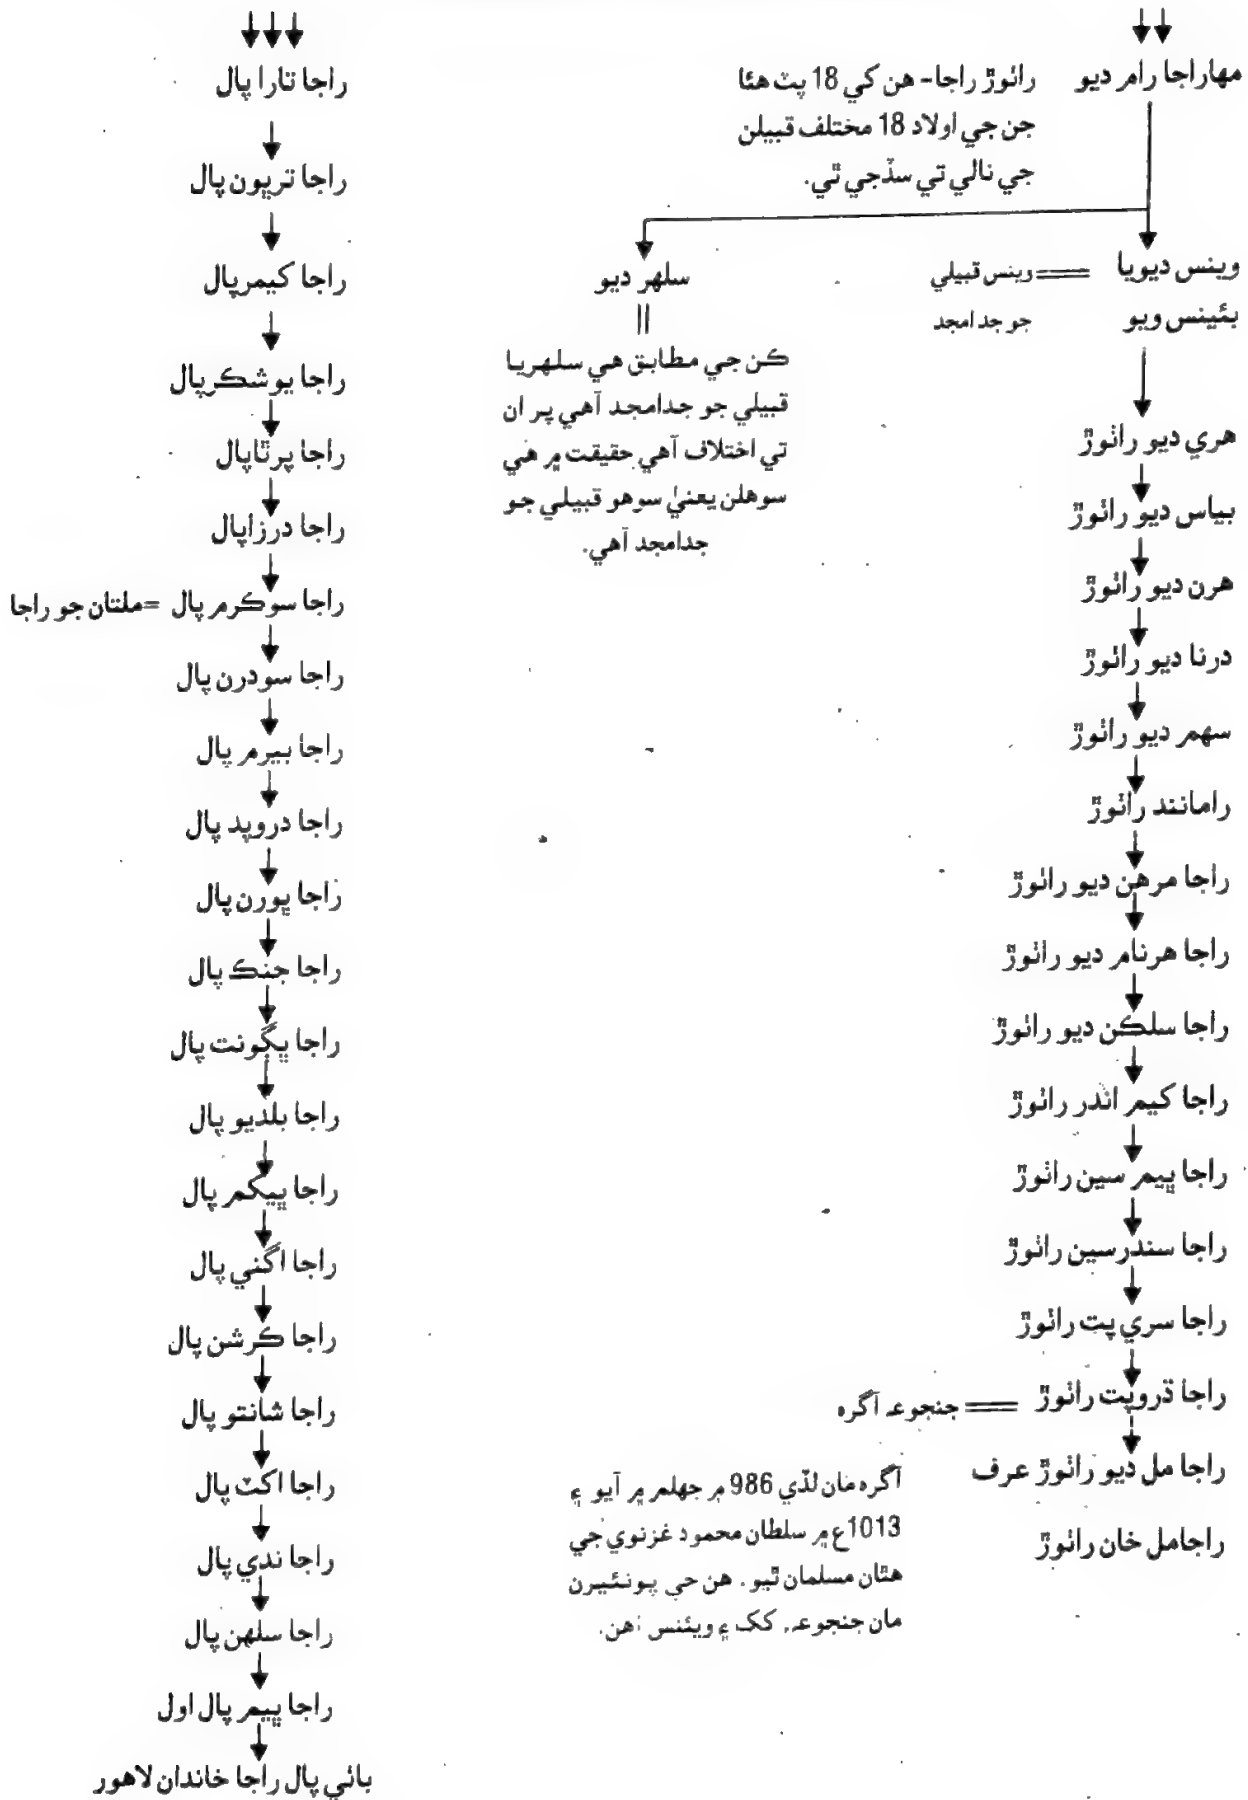 مهاراجا رام ديو
راٺوڙ راجا- هن کي 18 پٽ هئا
جن جي اولاد 18 مختلف قبيلن
جي نالي تي سڏجي ٿي.
وينس ديويا
بئينس ويو
== وينس قبيلي
جو جد امجد
سلهر ديو
||
ڪن جي مطابق هي سلهريا
قبيلي جو جدامجد آهي پر ان
تي اختلاف آهي حقيقت ۾ هي
سوهلن يعنيٰ سوهو قبيلي جو
جدامجد آهي.
هري ديو راٺوڙ
بياس ديو راٺوڙ
هرن ديو راٺوڙ
درنا ديو راٺوڙ
سهم ديو راٺوڙ
رامانند راٺوڙ
راجا مرهن ديو راٺوڙ
راجا هرنام ديو راٺوڙ
راجا سلڪن ديو راٺوڙ
راجا کيم اندر راٺوڙ
راجا ڀيم سين راٺوڙ
راجا سندرسين راٺوڙ
راجا سري پت راٺوڙ
راجا ڌروپت راٺوڙ == جنجوعہ آگره
راجا مل ديو راٺوڙ عرف
راجامل خان راٺوڙ
آگره مان لڏي 986 ۾ جهلم ۾ آيو ۽
1013ع ۾ سلطان محمود غزنوي جي
هٿان مسلمان ٿيو. هن جي پونئيرن
مان جنجوعہ, کک ۽ ويئنس آهن.
راجا تارا پال
راجا ترڀون پال
راجا کيمرپال
راجا يوشڪرپال
راجا پرٿاپال
راجا درزاپال
راجا سوڪرم پال =ملتان جو راجا
راجا سودرن پال
راجا بيرم پال
راجا دروپد پال
راجا پورن پال
راجا جنڪ پال
راجا ڀڳونت پال
راجا بلديو پال
راجا ڀيکم پال
راجا اگني پال
راجا ڪرشن پال
راجا شانتو پال
راجا اکٽ پال
راجا ندي پال
راجا سلهن پال
راجا ڀيم پال اول
باني پال راجا خاندان لاهور